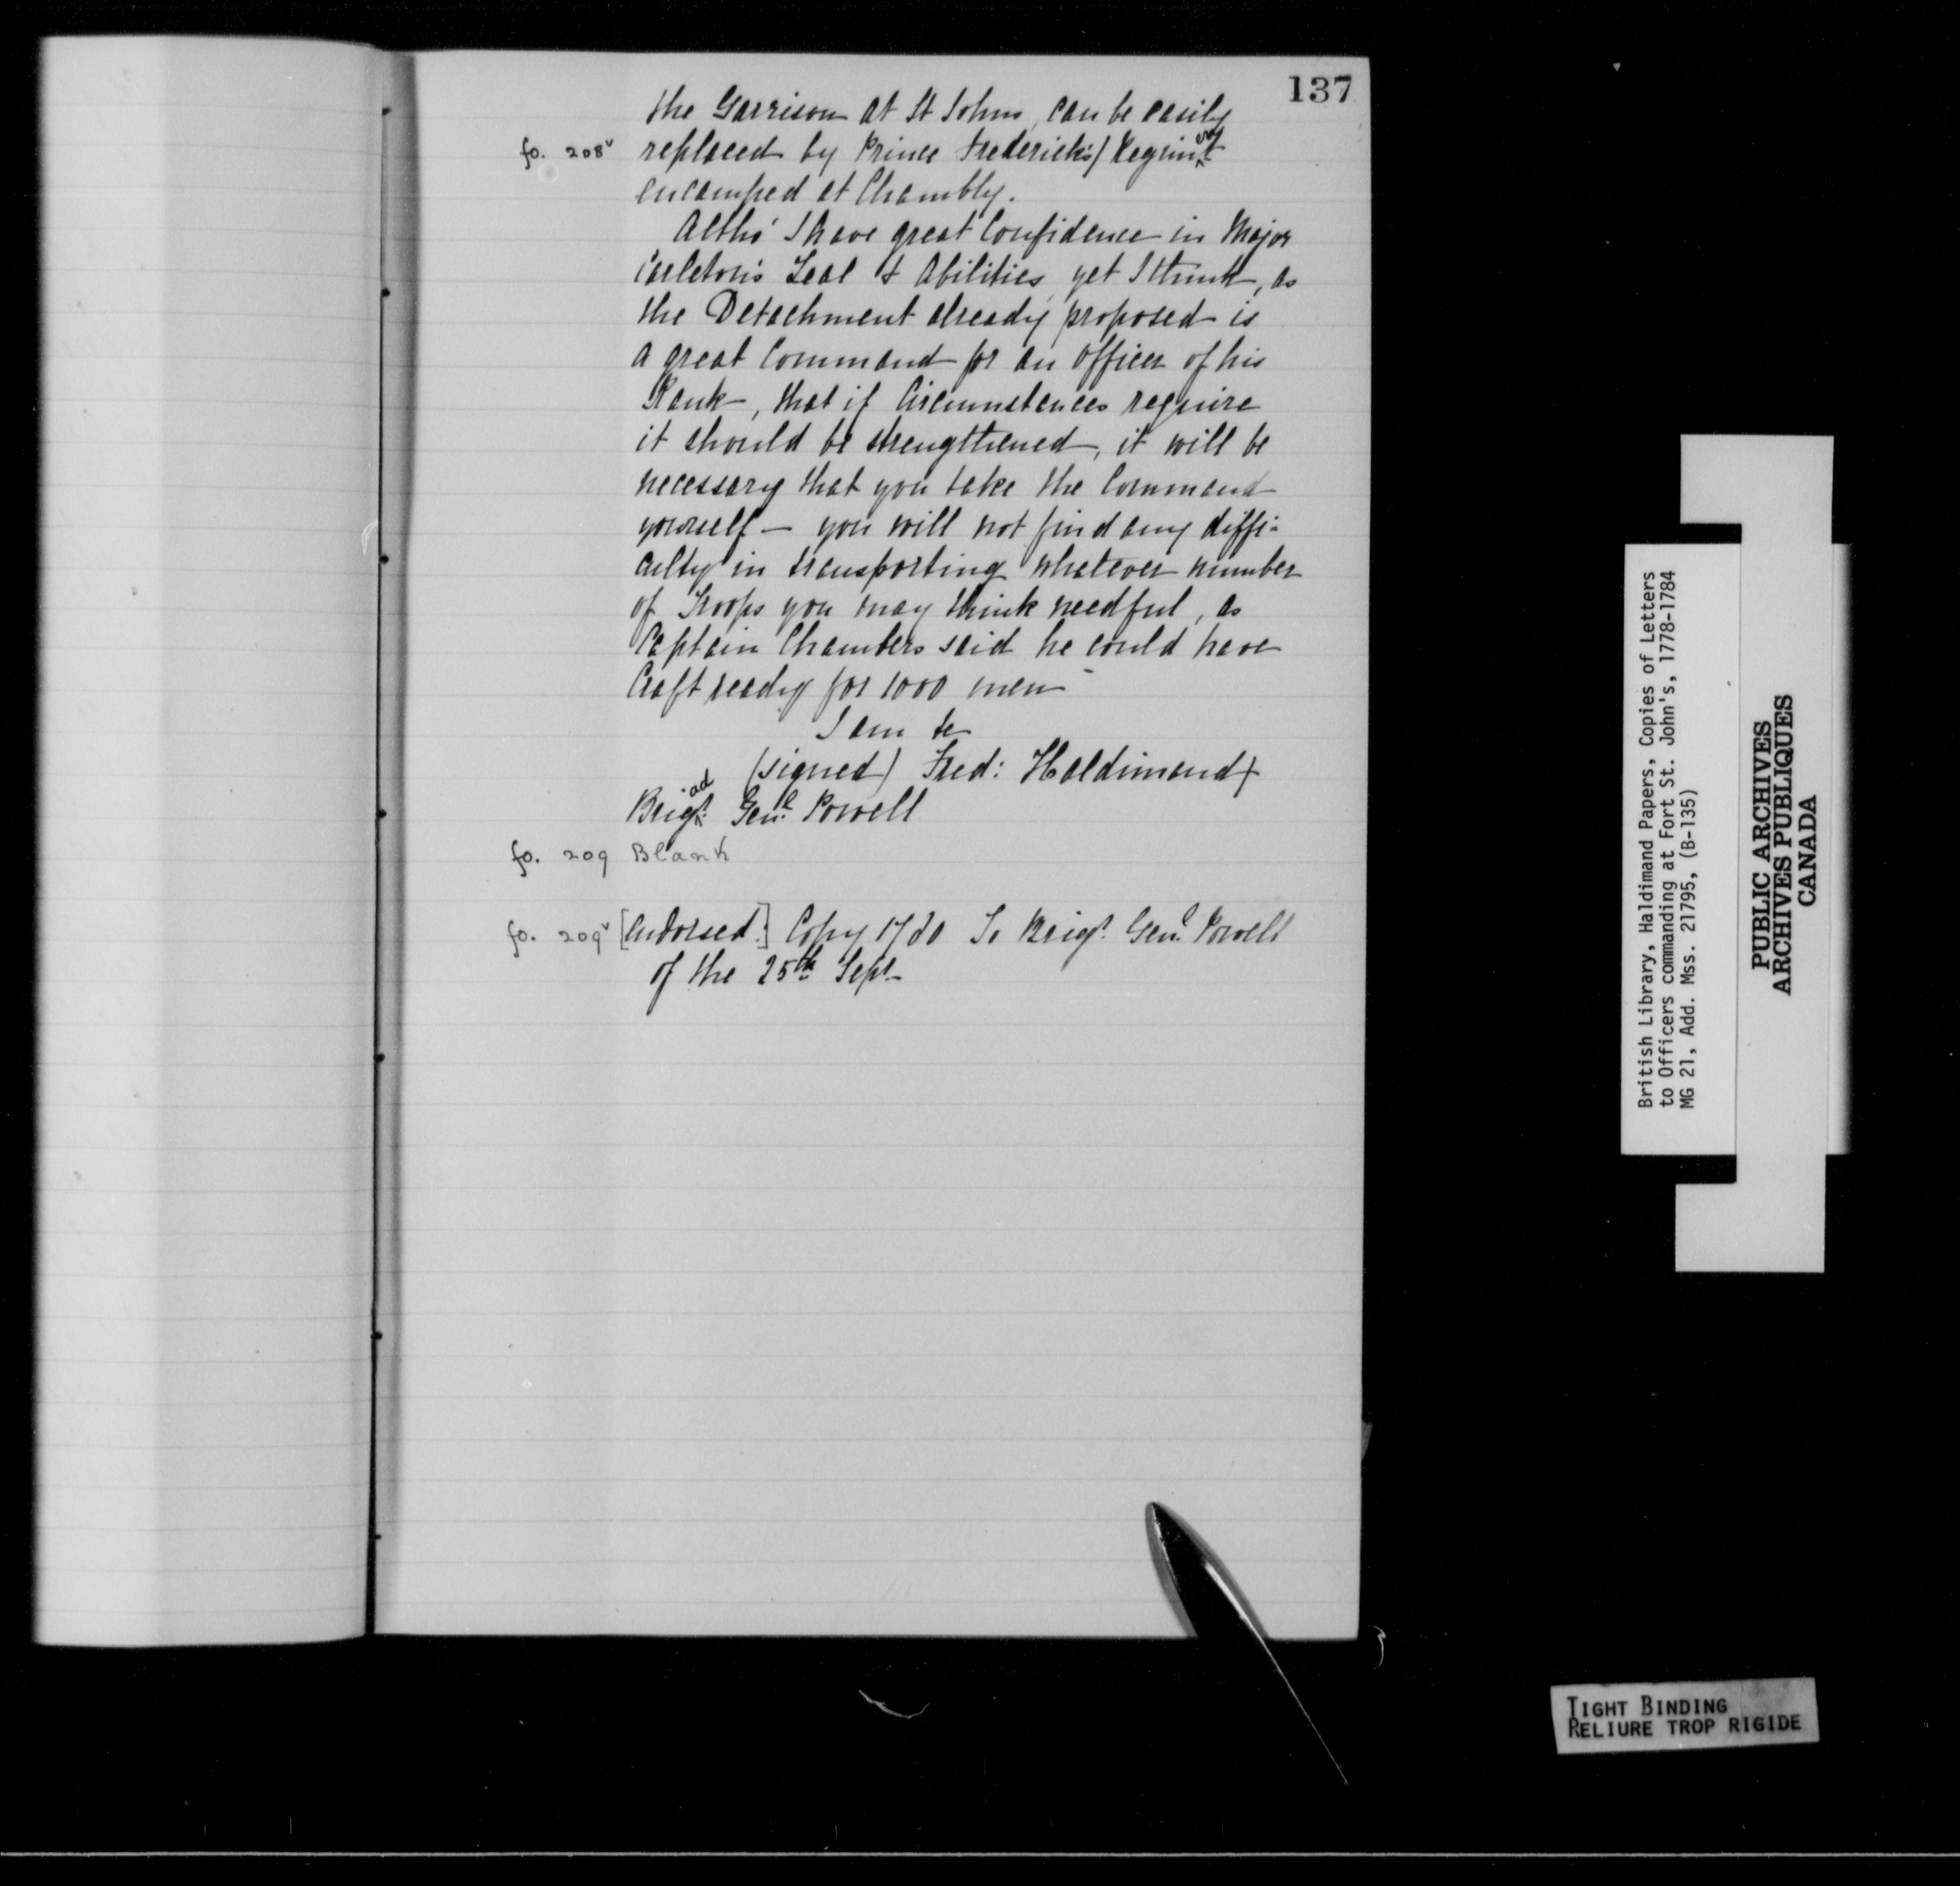 137
the Garrison at St Johns, can be easily
fo. 208v replaced by Prince Frederick's/Regiment
encamped at Chambly.
Altho' I have great Confidence in Major
Carleton's Zeal & Abilities, yet I think, as
the Detachment already proposed is
a great Command for an Officer of his
Rank, that if Circumstances require
it should be strengthened, it will be
necessary that you take the Command
yourself — you will not find any diffi-
culty in transporting whatever number
of Troops you may think needful, as
Captain Chambers said he could have
Craft ready for 1000 men -
I am &c
(signed) Fred: Haldimand
Brigad.r Gen.l Powell
fo. 209 Blank
fo. 209v [Endorsed.] Copy 1780 To Brig.r Gen.l Powell
of the 25th Sept.
British Library, Haldimand Papers, Copies of Letters
to Officers commanding at Fort St. John's, 1778-1784
MG 21, Add. Mss. 21795, (B-135)
PUBLIC ARCHIVES
ARCHIVES PUBLIQUES
CANADA
TIGHT BINDING
RELIURE TROP RIGIDE